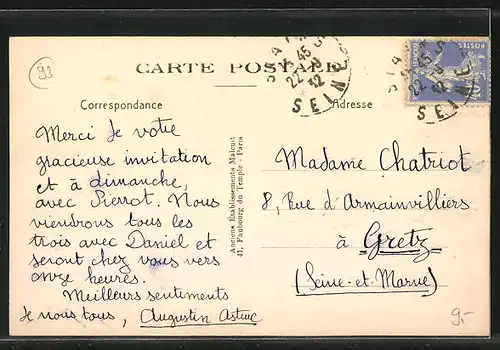 93
CARTE POSTALE
Correspondance
Adresse
Merci de votre
gracieuse invitation
et à dimanche,
avec Pierrot. Nous
viendrons tous les
trois avec Daniel et
seront chez vous vers
onze heures.
Meilleurs sentiments
de nous tous, Augustin Astuc
Anciens Établissements Malcuit
41, Faubourg du Temple - Paris
Madame Chatriot
8, Rue d'Armainvilliers
à Gretz
(Seine-et-Marne)
SEINE
SEINE
POSTES
9.-